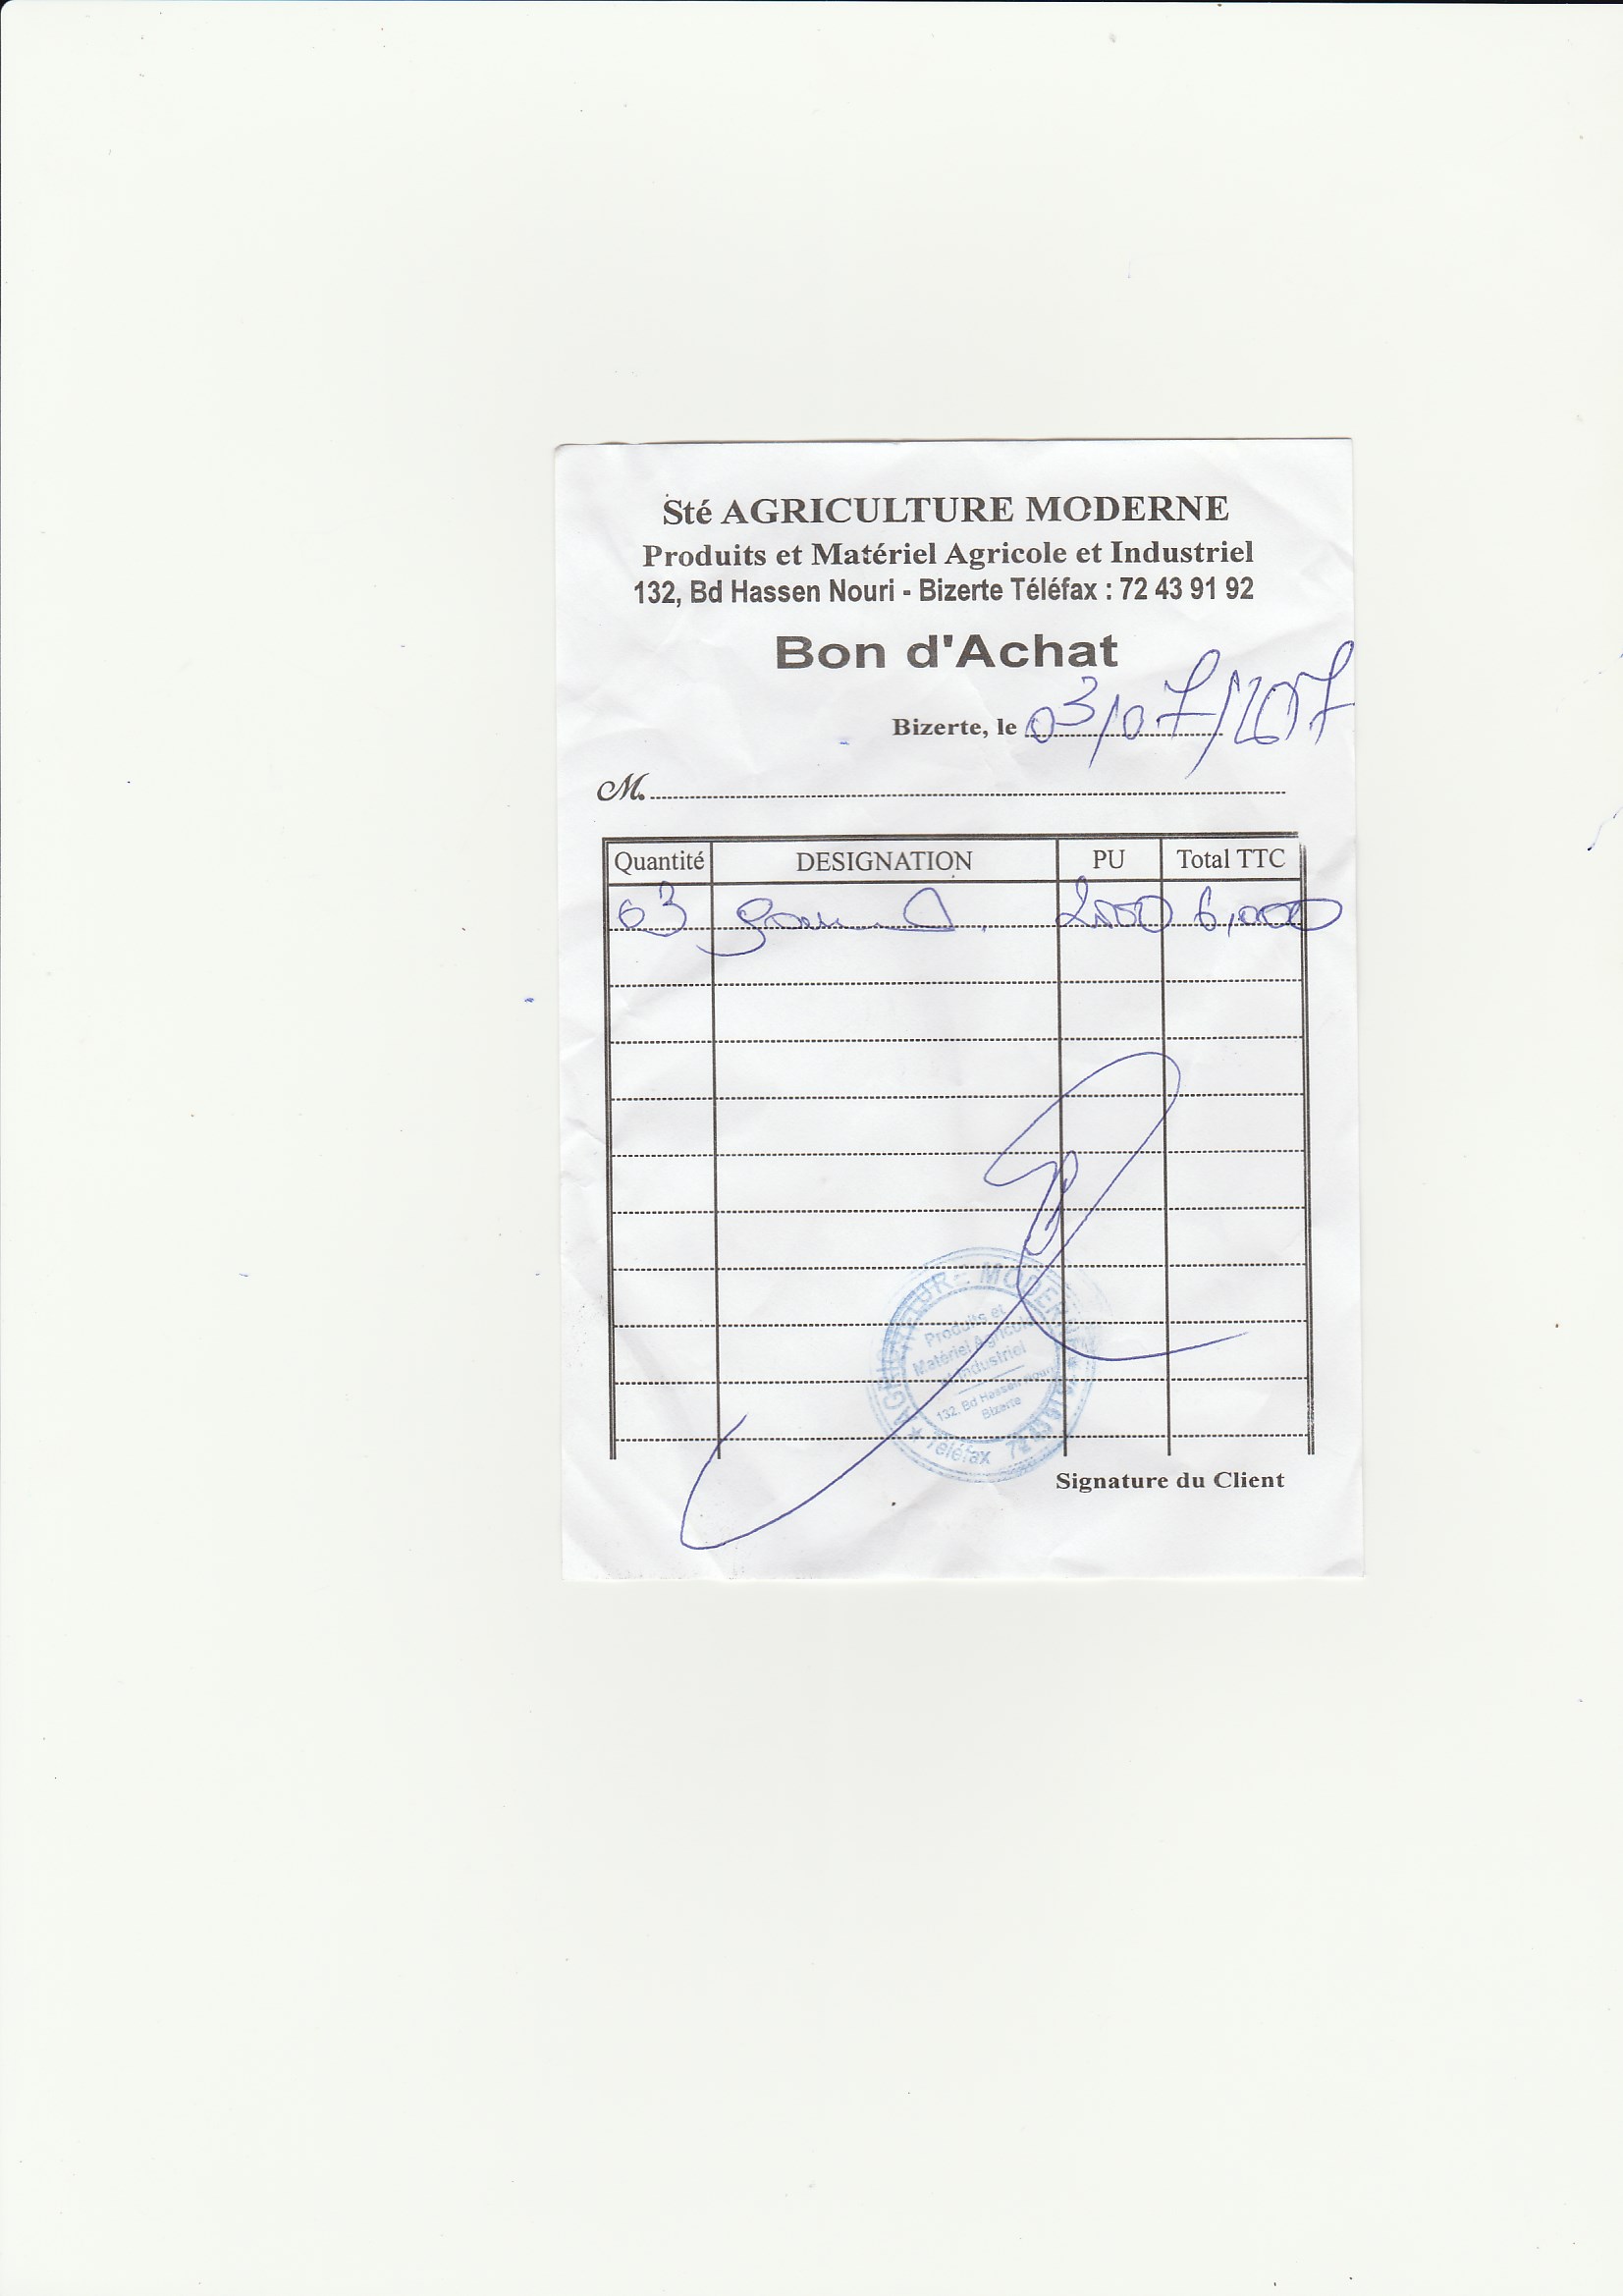 Sté AGRICULTURE MODERNE
Produits et Matériel Agricole et Industriel
132, Bd Hassen Nouri - Bizerte Téléfax : 72 43 91 92
Bon d'Achat
Bizerte, le 03/07/2017
M.
Quantité DESIGNATION PU Total TTC
03 2,000 6,000
AGRICULTURE MODERNE
Produits et
Matériel Agricole
et Industriel
132, Bd Hassen Nouri
Bizerte
Téléfax 72 43 91 92
Signature du Client